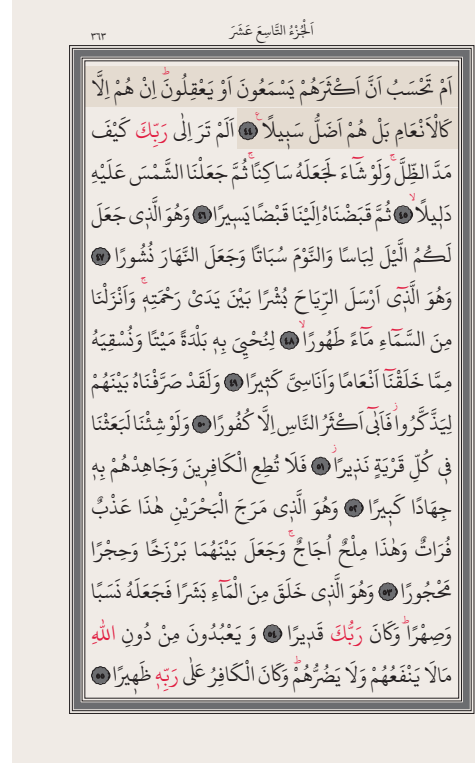 اَلْجُزْءُ التَّاسِعَ عَشَرَ
٣٦٣
اَمْ تَحْسَبُ اَنَّ اَكْثَرَهُمْ يَسْمَعُونَ اَوْ يَعْقِلُونَۜ اِنْ هُمْ اِلَّا
كَالْاَنْعَامِ بَلْ هُمْ اَضَلُّ سَب۪يلًا۟ ﴿٤٤﴾ اَلَمْ تَرَ اِلٰى رَبِّكَ كَيْفَ
مَدَّ الظِّلَّۚ وَلَوْ شَٓاءَ لَجَعَلَهُ سَاكِنًاۚ ثُمَّ جَعَلْنَا الشَّمْسَ عَلَيْهِ
دَل۪يلًاۙ ﴿٤٥﴾ ثُمَّ قَبَضْنَاهُ اِلَيْنَا قَبْضًا يَس۪يرًا ﴿٤٦﴾ وَهُوَ الَّذ۪ي جَعَلَ
لَكُمُ الَّيْلَ لِبَاسًا وَالنَّوْمَ سُبَاتًا وَجَعَلَ النَّهَارَ نُشُورًا ﴿٤٧﴾
وَهُوَ الَّذ۪ٓي اَرْسَلَ الرِّيَاحَ بُشْرًا بَيْنَ يَدَيْ رَحْمَتِه۪ۚ وَاَنْزَلْنَا
مِنَ السَّمَٓاءِ مَٓاءً طَهُورًاۙ ﴿٤٨﴾ لِنُحْيِيَ بِه۪ بَلْدَةً مَيْتًا وَنُسْقِيَهُ
مِمَّا خَلَقْنَٓا اَنْعَامًا وَاَنَاسِيَّ كَث۪يرًا ﴿٤٩﴾ وَلَقَدْ صَرَّفْنَاهُ بَيْنَهُمْ
لِيَذَّكَّرُواۘ فَاَبٰٓى اَكْثَرُ النَّاسِ اِلَّا كُفُورًا ﴿٥٠﴾ وَلَوْ شِئْنَا لَبَعَثْنَا
ف۪ي كُلِّ قَرْيَةٍ نَذ۪يرًاۘ ﴿٥١﴾ فَلَا تُطِعِ الْكَافِر۪ينَ وَجَاهِدْهُمْ بِه۪
جِهَادًا كَب۪يرًا ﴿٥٢﴾ وَهُوَ الَّذ۪ي مَرَجَ الْبَحْرَيْنِ هٰذَا عَذْبٌ
فُرَاتٌ وَهٰذَا مِلْحٌ اُجَاجٌۚ وَجَعَلَ بَيْنَهُمَا بَرْزَخًا وَحِجْرًا
مَحْجُورًا ﴿٥٣﴾ وَهُوَ الَّذ۪ي خَلَقَ مِنَ الْمَٓاءِ بَشَرًا فَجَعَلَهُ نَسَبًا
وَصِهْرًاۜ وَكَانَ رَبُّكَ قَد۪يرًا ﴿٥٤﴾ وَ يَعْبُدُونَ مِنْ دُونِ اللّٰهِ
مَالَا يَنْفَعُهُمْ وَلَا يَضُرُّهُمْۜ وَكَانَ الْكَافِرُ عَلٰى رَبِّه۪ ظَه۪يرًا ﴿٥٥﴾